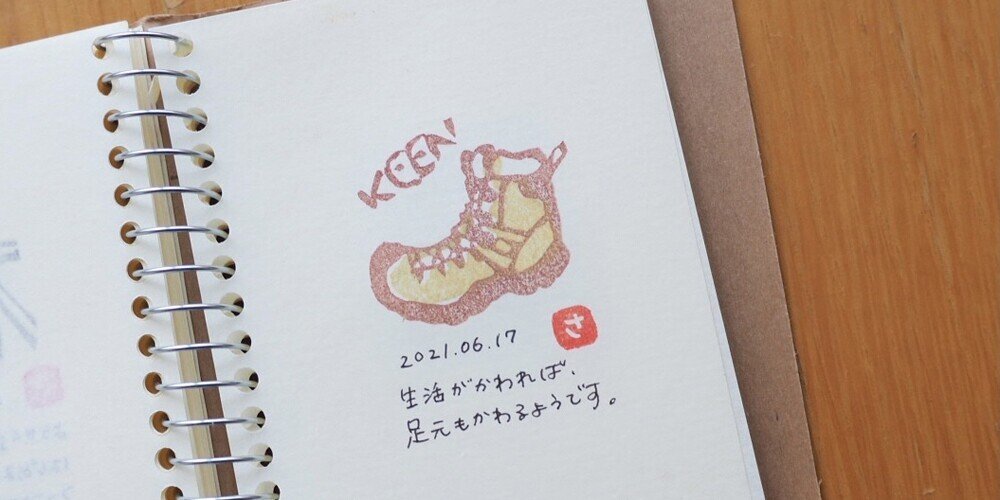 KEEN!
2021.06.17
さ
生活がかわれば、
足元もかわるようです。